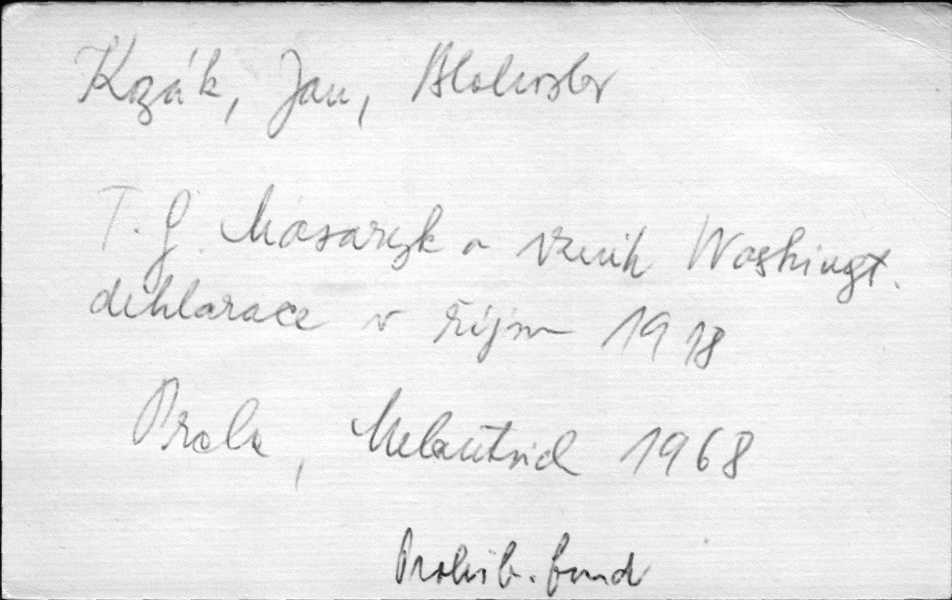 Kozák, Jan, Blahoslav
T. G. Masaryk a vznik Washingt.
deklarace v říjnu 1918
Praha, Melantrich 1968
Prohib. fond